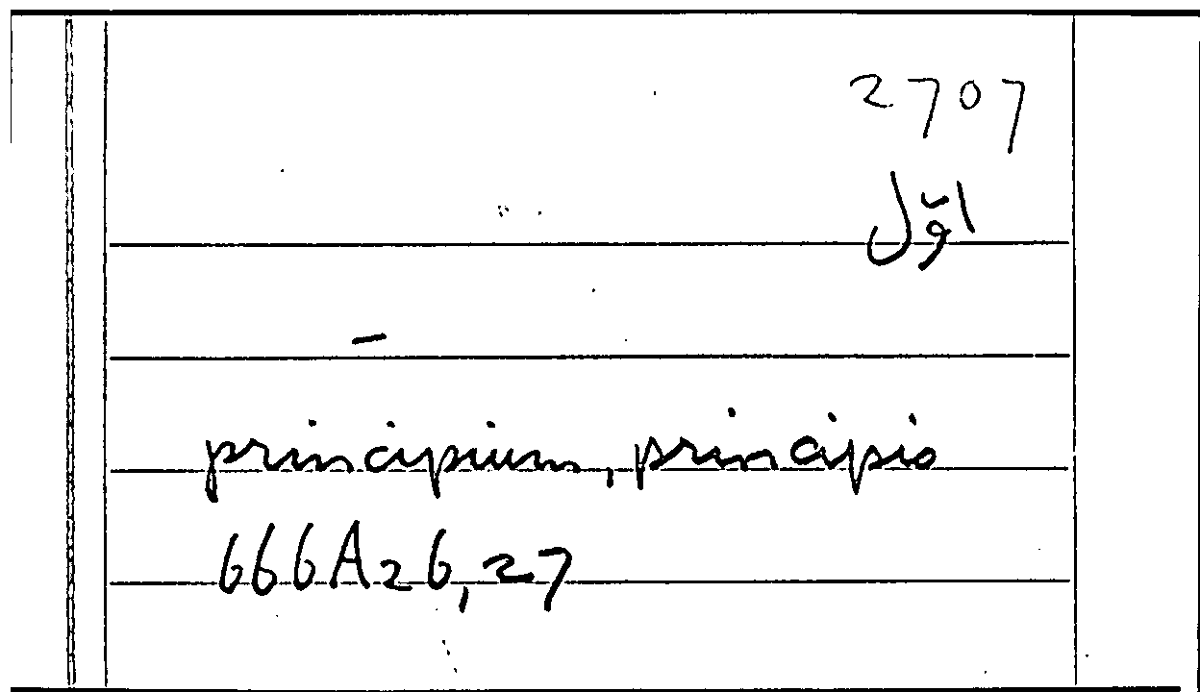 2707
اوّل
–
principium, principio
666A26,27